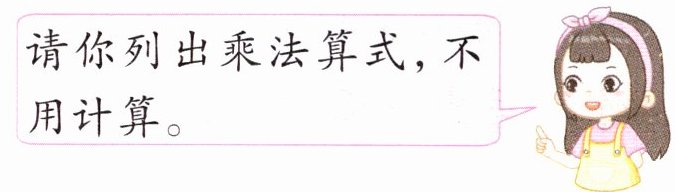 请你列出乘法算式，不
用计算。